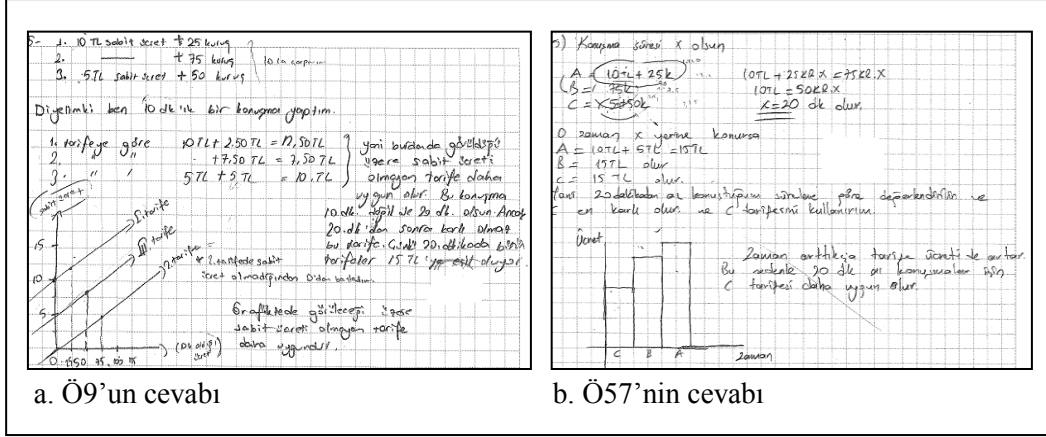 5- 1. 10 TL sabit ücret + 25 kuruş
2. —— + 75 kuruş
3. 5TL sabit ücret + 50 kuruş
10 ile
Diyelimki ben 10 dk'lık bir konuşma yaptım.
1. tarifeye göre 10TL + 2.50 TL = 12,50TL
2. " " +7,50 TL = 7,50TL
3. " " 5TL + 5TL = 10,TL
yani burdanda görüldüğü
üzere sabit ücreti
olmayan tarife daha
uygun olur. Bu konuşma
10.dk. değil de 20 dk. olsun. Ancak
20.dk'dan sonra karlı olmaz
bu tarife. Çünkü 20.dakikada bütün
tarifeler 15 TL'ye eşit oluyor.
sabit ücret
1.tarife
III. tarife
2.tarife
* 2.tarifede sabit
ücret olmadığından 0'dan başladım.
15
10
5
0
Grafiktede görüleceği üzere
sabit ücreti olmayan tarife
daha uygundur.
a. Ö9'un cevabı
5) Konuşma süresi x olsun
A = 10TL + 25k
B = 75k
C =
10TL + 25kr.x = 75kr.x
10TL = 50kr.x
x=20 dk olur.
O zaman x yerine konursa
A = 10TL + 5TL = 15TL
B = 15TL olur
C = 15 TL olur.
Yani 20 dakikadan az konuştuğum sürelere göre değerlendirilir ve
C en karlı olur ve C tarifesini kullanırım.
Ücret
C B A
zaman
Zaman arttıkça tarife ücreti de artar.
Bu nedenle 20 dk az konuşmalar için
C tarifesi daha uygun olur.
b. Ö57'nin cevabı